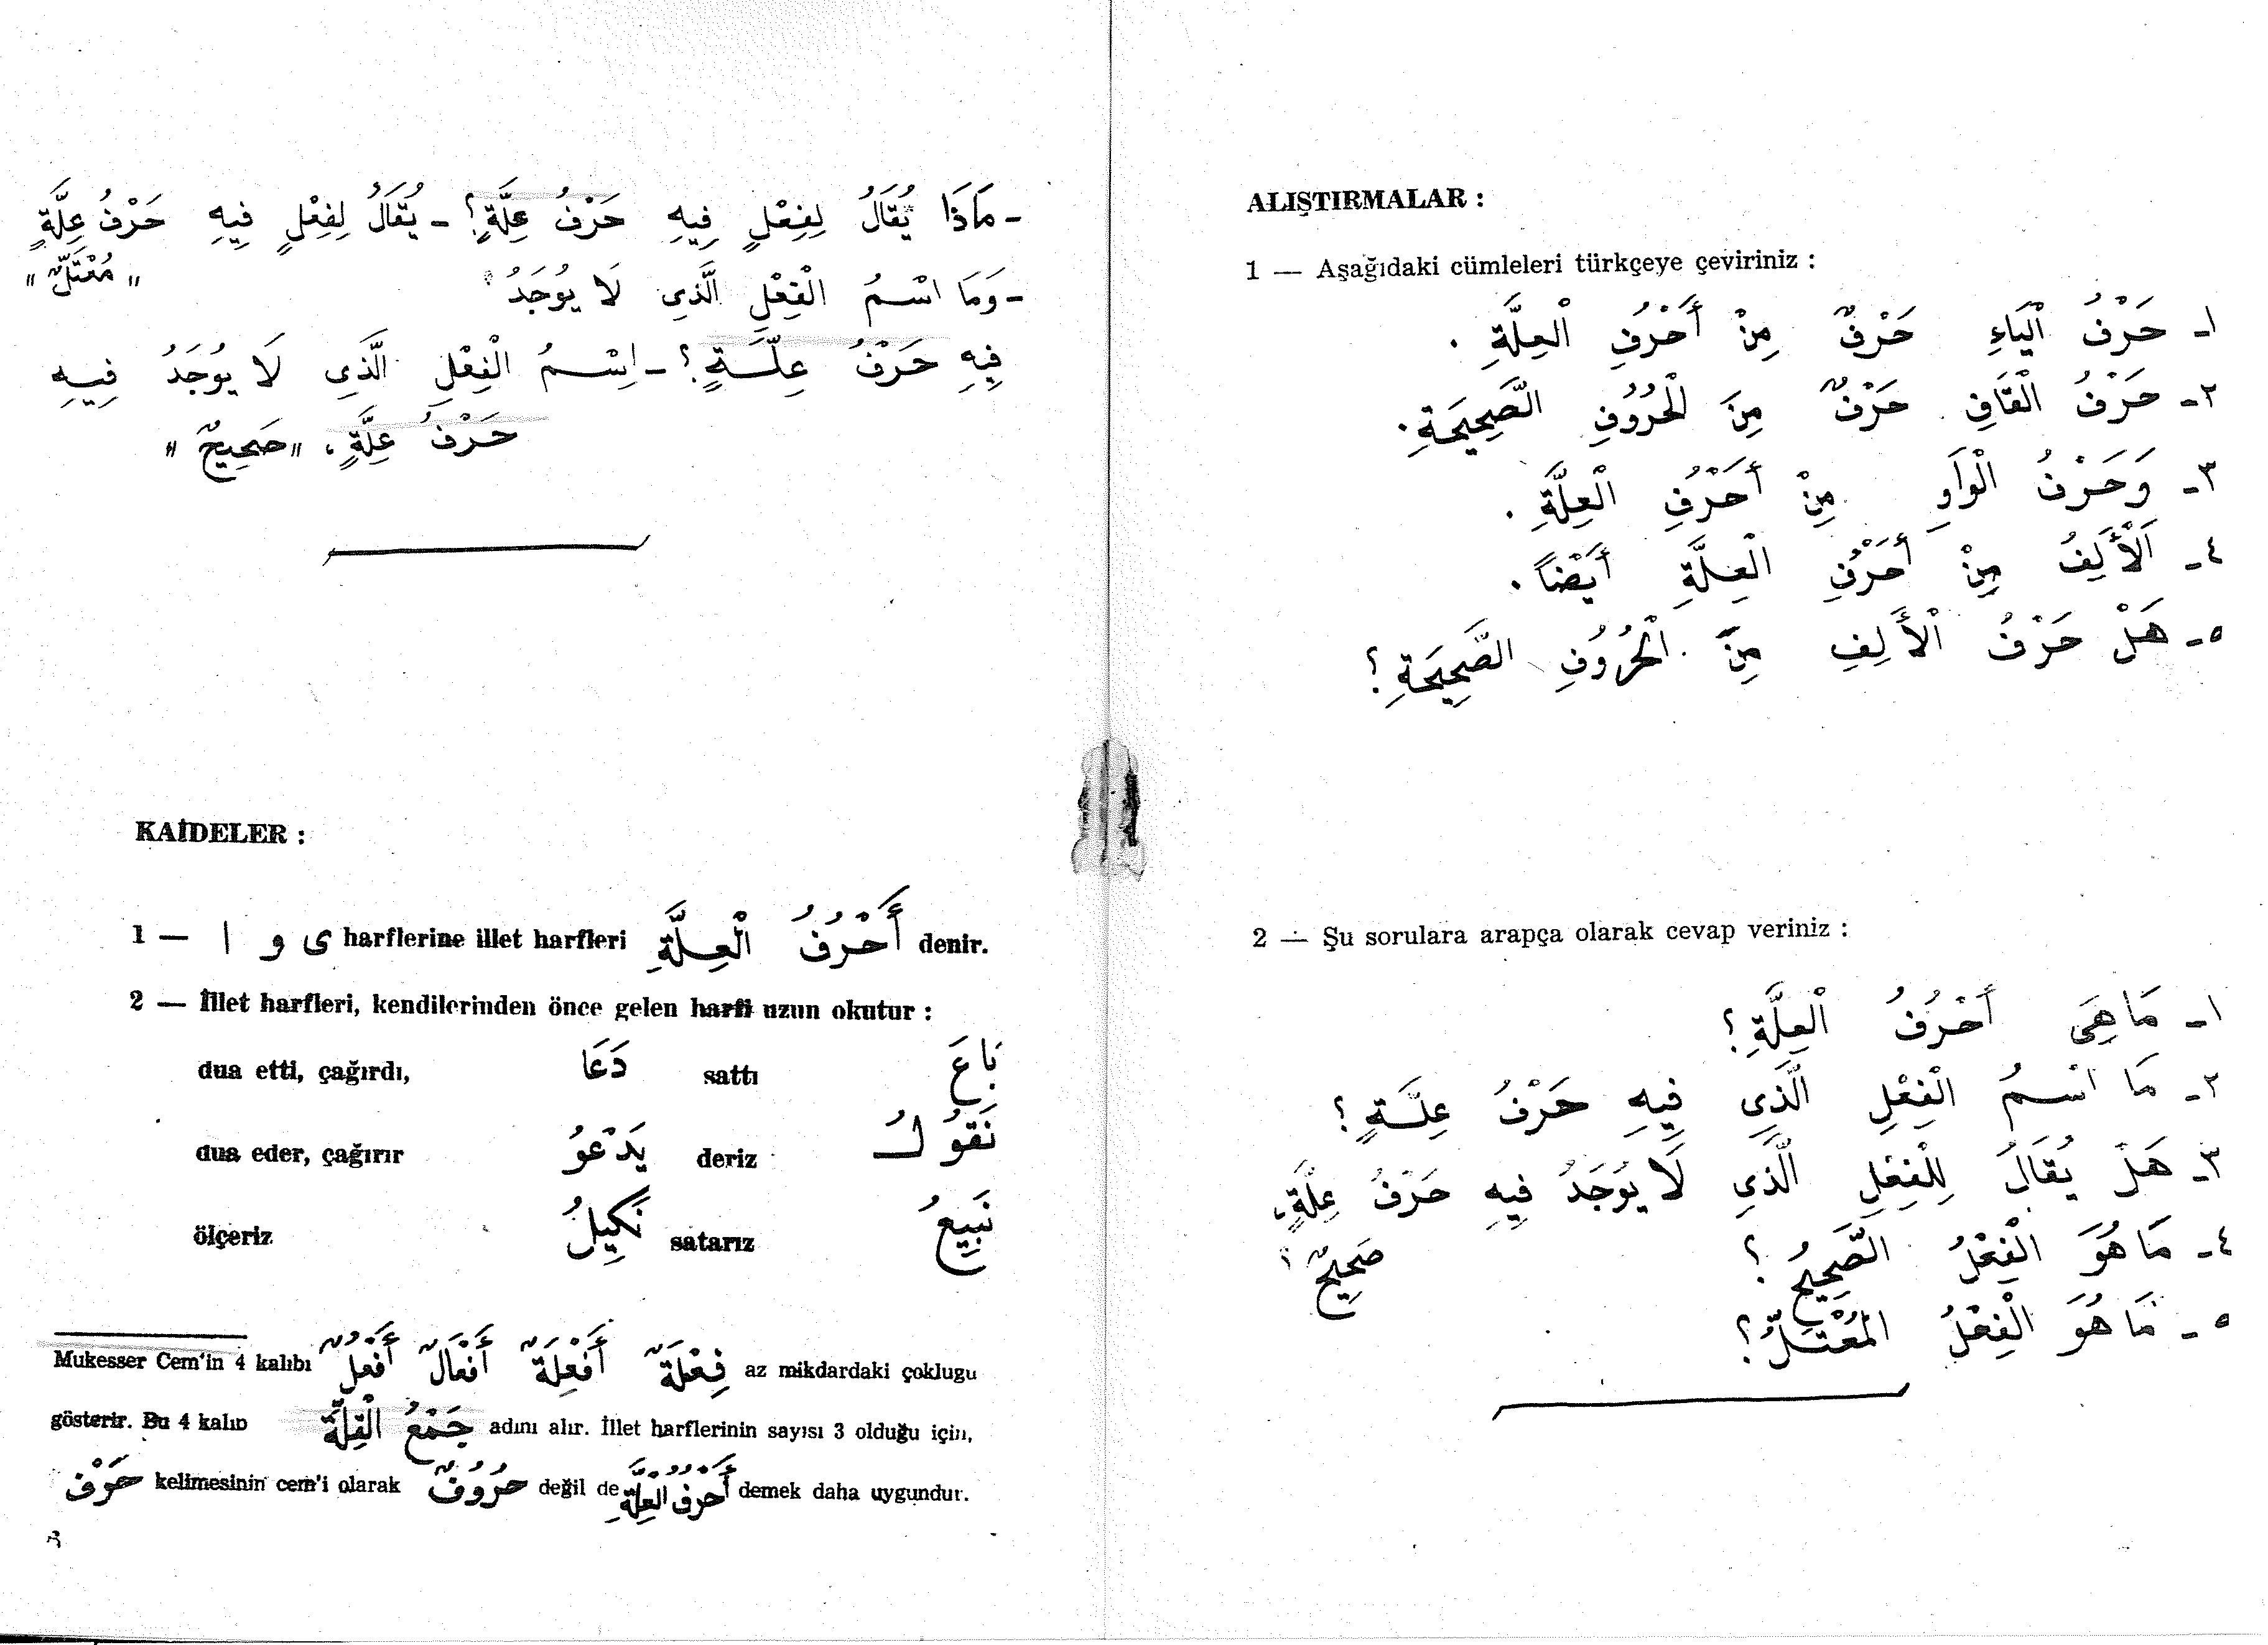 - مَاذَا يُقَالُ لِفِعْلٍ فِيهِ حَرْفُ عِلَّةٍ؟ - يُقَالُ لِفِعْلٍ فِيهِ حَرْفُ عِلَّةٍ
"مُعْتَلٌّ"
- وَمَا اسْمُ الْفِعْلِ الَّذِي لَا يُوجَدُ
فِيهِ حَرْفُ عِلَّةٍ؟ - اِسْمُ الْفِعْلِ الَّذِي لَا يُوجَدُ فِيهِ
حَرْفُ عِلَّةٍ، "صَحِيحٌ"
KAİDELER :
1 — ا و ى harflerine illet harfleri أَحْرُفُ الْعِلَّةِ denir.
2 — İllet harfleri, kendilerinden önce gelen harfi uzun okutur :
dua etti, çağırdı, دَعَا sattı بَاعَ
dua eder, çağırır يَدْعُو deriz نَقُولُ
ölçeriz نَكِيلُ satarız نَبِيعُ
Mukesser Cem'in 4 kalıbı أَفْعُلٌ أَفْعَالٌ أَفْعِلَةٌ فِعْلَةٌ az mikdardaki çoklugu
gösterir. Bu 4 kalıb جَمْعُ الْقِلَّةِ adını alır. İllet harflerinin sayısı 3 olduğu için,
حَرْف kelimesinin cem'i olarak حُرُوفٌ değil de أَحْرُفُ الْعِلَّةِ demek daha uygundur.
ALIŞTIRMALAR :
1 — Aşağıdaki cümleleri türkçeye çeviriniz :
١- حَرْفُ الْيَاءِ حَرْفٌ مِنْ أَحْرُفِ الْعِلَّةِ .
٢- حَرْفُ الْقَافِ حَرْفٌ مِنَ الْحُرُوفِ الصَّحِيحَةِ .
٣- وَحَرْفُ الْوَاوِ مِنْ أَحْرُفِ الْعِلَّةِ .
٤- اَلْأَلِفُ مِنْ أَحْرُفِ الْعِلَّةِ أَيْضاً .
٥- هَلْ حَرْفُ الْأَلِفِ مِنَ الْحُرُوفِ الصَّحِيحَةِ ؟
2 — Şu sorulara arapça olarak cevap veriniz :
١- مَا هِيَ أَحْرُفُ الْعِلَّةِ ؟
٢- مَا اسْمُ الْفِعْلِ الَّذِي فِيهِ حَرْفُ عِلَّةٍ ؟
٣- هَلْ يُقَالُ لِلْفِعْلِ الَّذِي لَا يُوجَدُ فِيهِ حَرْفُ عِلَّةٍ،
صَحِيحٌ ؟
٤- مَا هُوَ الْفِعْلُ الصَّحِيحُ ؟
٥- مَا هُوَ الْفِعْلُ الْمُعْتَلُّ ؟